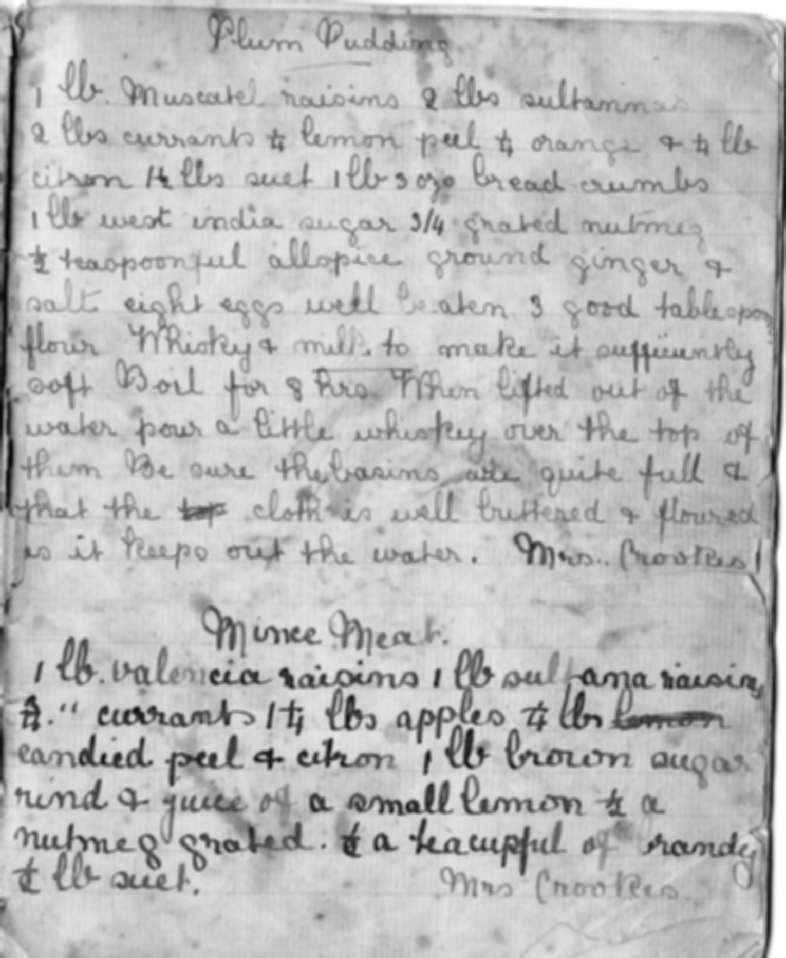 Plum Pudding
1 lb. Muscatel raisins 2 lbs sultannas
2 lbs currants ¼ lemon peel ¼ orange & ¼ lb
citron 1½ lbs suet 1 lb 3 ozs bread crumbs
1 lb west india sugar 3/4 grated nutmeg
½ teaspoonful allspice ground ginger &
salt eight eggs well beaten 3 good tablespon
flour Whisky & milk. to make it suffiuently
soft Boil for 8 hrs When lifted out of the
water pour a little whiskey over the top of
them Be sure the basins are quite full &
that the cloth is well buttered & floured
as it keeps out the water. Mrs. Crookes
Mince Meat.
1 lb. valencia raisins 1 lb sultana raisins
" currants 1¼ lbs apples ¼ lbs lemon
candied peel & citron 1 lb brown sugar
rind & juice of a small lemon ½ a
nutmeg grated. ½ a teacupful of brandy
½ lb suet. Mrs Crookes.